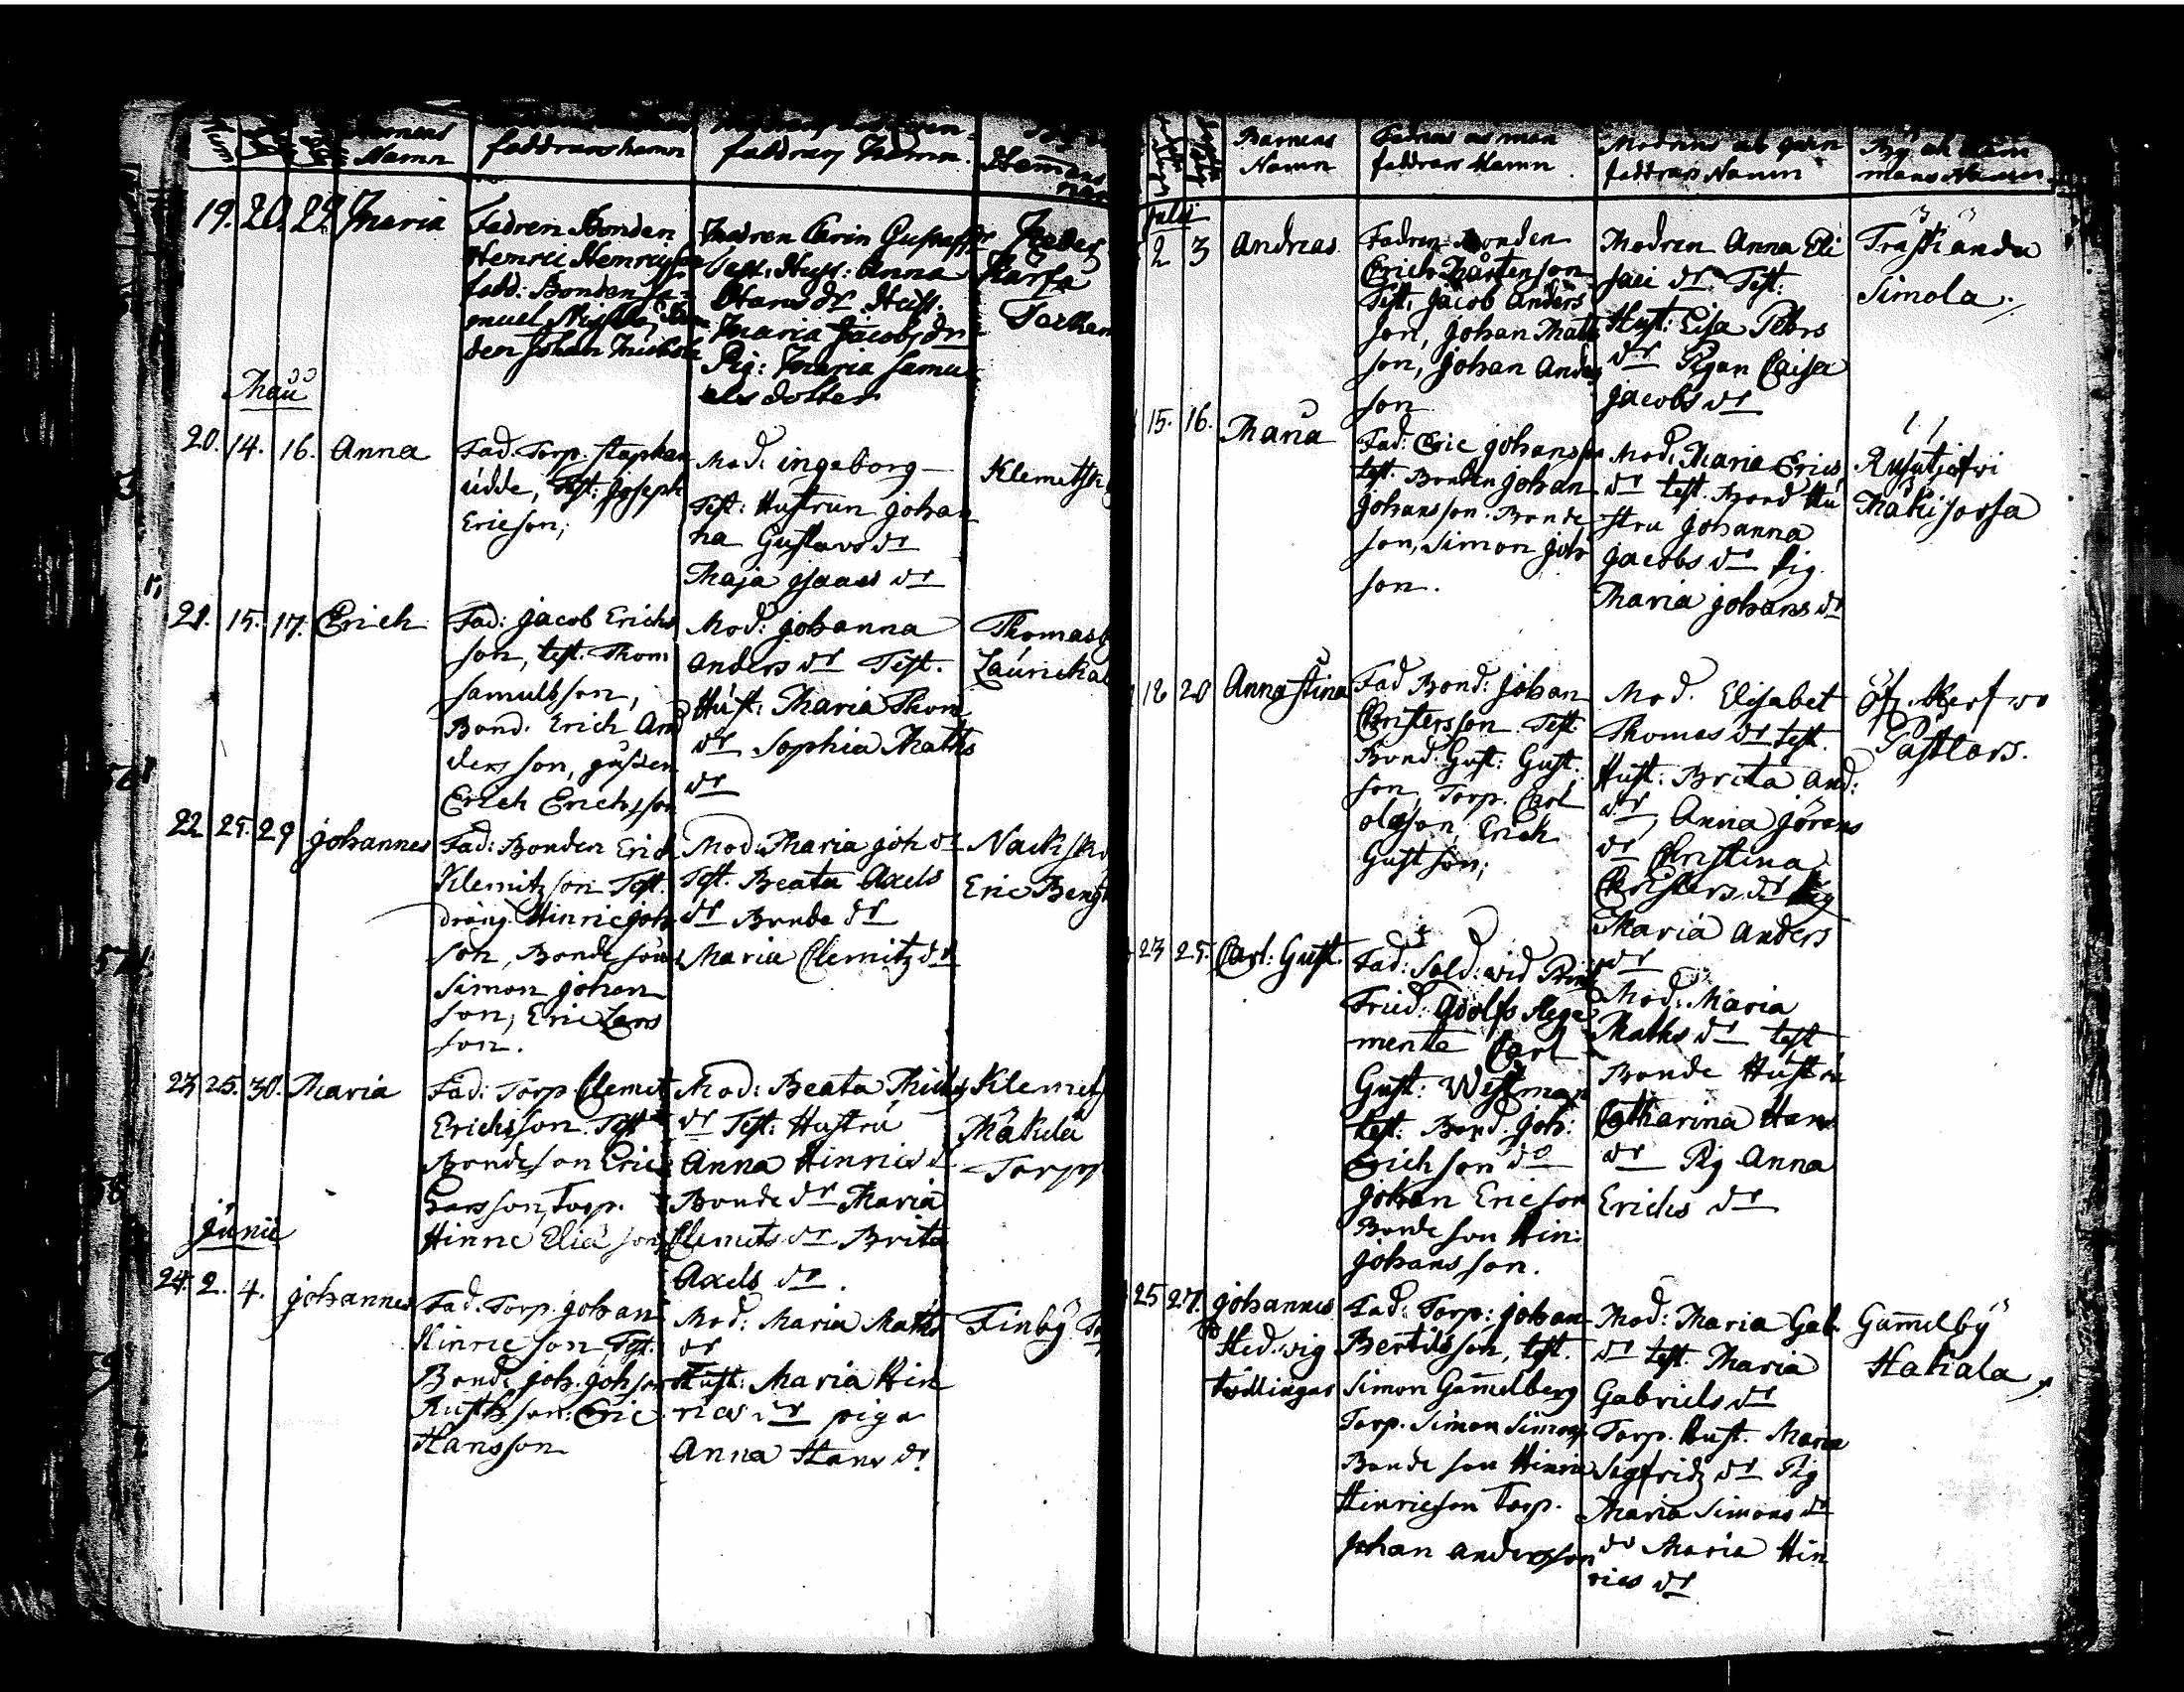 Barnens
Namn
faddrars Namn
faddrars Namn
Hemans
19. 20. 29. Maria
Fadren Bonden
Henric Henricsson
fadd: Bonden Sa-
muel
den Johan Michels
Modren Carin Gustafs
test: Hust: Anna
Hans dr Hust:
Maria Jacobs dr
Pig: Maria Samu
els dotter
Torkan
Maii
20. 14. 16. Anna
Fad. Torp. Staphan
Udde, Test: Joseph
Ericson,
Mod: ingeborg
Test: Hustrun Johan
na Gustavs dr
Maja Isaacs dr
Klemetsk
21. 15. 17. Erich
Fad: Jacob Erichs
son, test. Thom
Samuelsson,
Bond. Erich An
dersson, gossen
Erich Erichsson
Mod: Johanna
Anders dr Test.
Hust: Maria Thom
dr Sophia Maths
dr
Thomasb
Laurickal
22 25. 29 Johannes
Fad: Bonden Erich
Klemitzson Test.
dräng. Hinric Joh
son, Bonde son
Simon Johan
son, Eric Lars
son.
Mod: Maria Joh dr
Test. Beata Axels
dr Bonde dr
Maria Clemitz dr
Nacksk
Eric Bengt
23 25. 30. Maria
Fad: Torp Clemet
Erichsson. Test
Bondeson Eric
Larsson, Torp.
Hinric Elia son
Mod: Beata Michels
dr Test: Hustru
Anna Hinrics dr
Bonde dr Maria
Clemets dr Brita
Axels dr.
Klemets
Mäkilä
Torp
Junii
24. 2. 4. Johannes
Fad. Torp. Johan
Hinric son, Test.
Bond. Joh. Johson
Rusth son: Eric
Hansson
Mod: Maria Maths
dr
Hust: Maria Hin
rics dr piga
Anna Hans dr
Finby
Barnens
Namn
Fadrens och man
faddrars Namn
Modrens och qvin
faddrars Namn
By och Hem
mans Namn
Julii
2 3 Andreas
Fadren Bonden
Erich Mårtenson
Test: Jacob Anders
son, Johan Matts
son, Johan Anders
son
Modren Anna Eli
saii dr Test:
Hust: Lisa Pehrs
dr Pigan Caisa
Jacobs dr
Träskända
Simola.
15. 16. Maria
Fad: Eric Johansson
test. Bonden Johan
Johansson. Bonde
son, Simon Joh
son.
Mod: Maria Erics
dr test. Bond Hu
stru Johanna
Jacobs dr Pig
Maria Johans dr
Rusutjerfwi
18 20 Anna Stina
Fad Bond: Johan
Christersson. Test:
Bond. Gust: Gust.
son, Torp. Carl
Olofson, Erich
Gustson;
Mod. Elisabet
Thomas dr test.
Hust: Brita And:
dr, Anna Jörans
dr Christina
Christers dr Pig
Maria Anders
dr
Påstlars.
23 25. Carl: Gust.
Fad: Sold: wid Prin
Fried: Adolfs Rege
mente Carl
Gust: Westman
test: Bond. Joh:
Erichson do
Johan Ericson
Bonde son Hin:
Johansson.
Mod: Maria
Maths dr test
Bonde Hustru
Catharina Hans
dr Pig Anna
Erichs dr
25 27. Johannes
Hedwig
twillingar
Fad: Torp: Johan
Bertilsson, test.
Simon Gam̄elberg
Torp. Simon Simons
Bonde son Hinric
Hinricson Torp.
Johan Andersson
Mod: Maria Gab.
dr test. Maria
Gabriels dr
Torp. Hust. Maria
Sigfridz dr Pig
Maria Simons dr
do Maria Hin
rics dr
Gam̄elby
Hakala